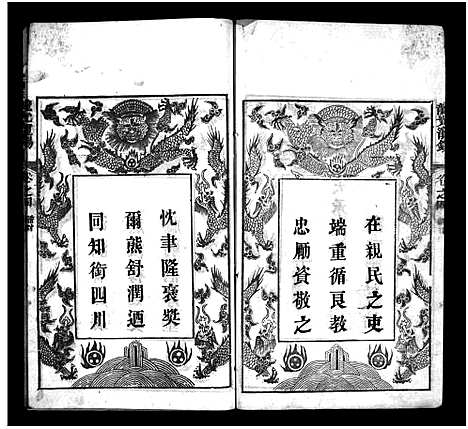 在親民之吏
端重循良教
忠勵資敬之
忱聿隆褒奬
爾熊舒潤迺
同知銜四川